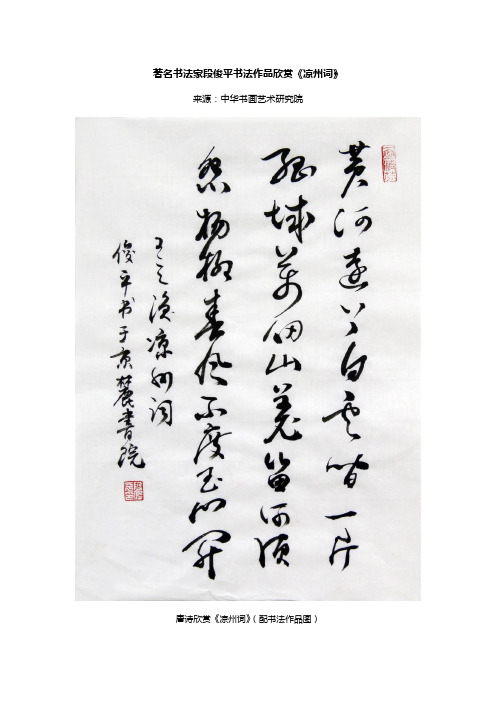 著名书法家段俊平书法作品欣赏《凉州词》
来源：中华书画艺术研究院
黄河遠上白雲間一片
孤城萬仞山羌笛何須
怨楊柳春風不度玉門關
王之渙凉州詞
俊平书于京麓書院
唐诗欣赏《凉州词》（配书法作品图）